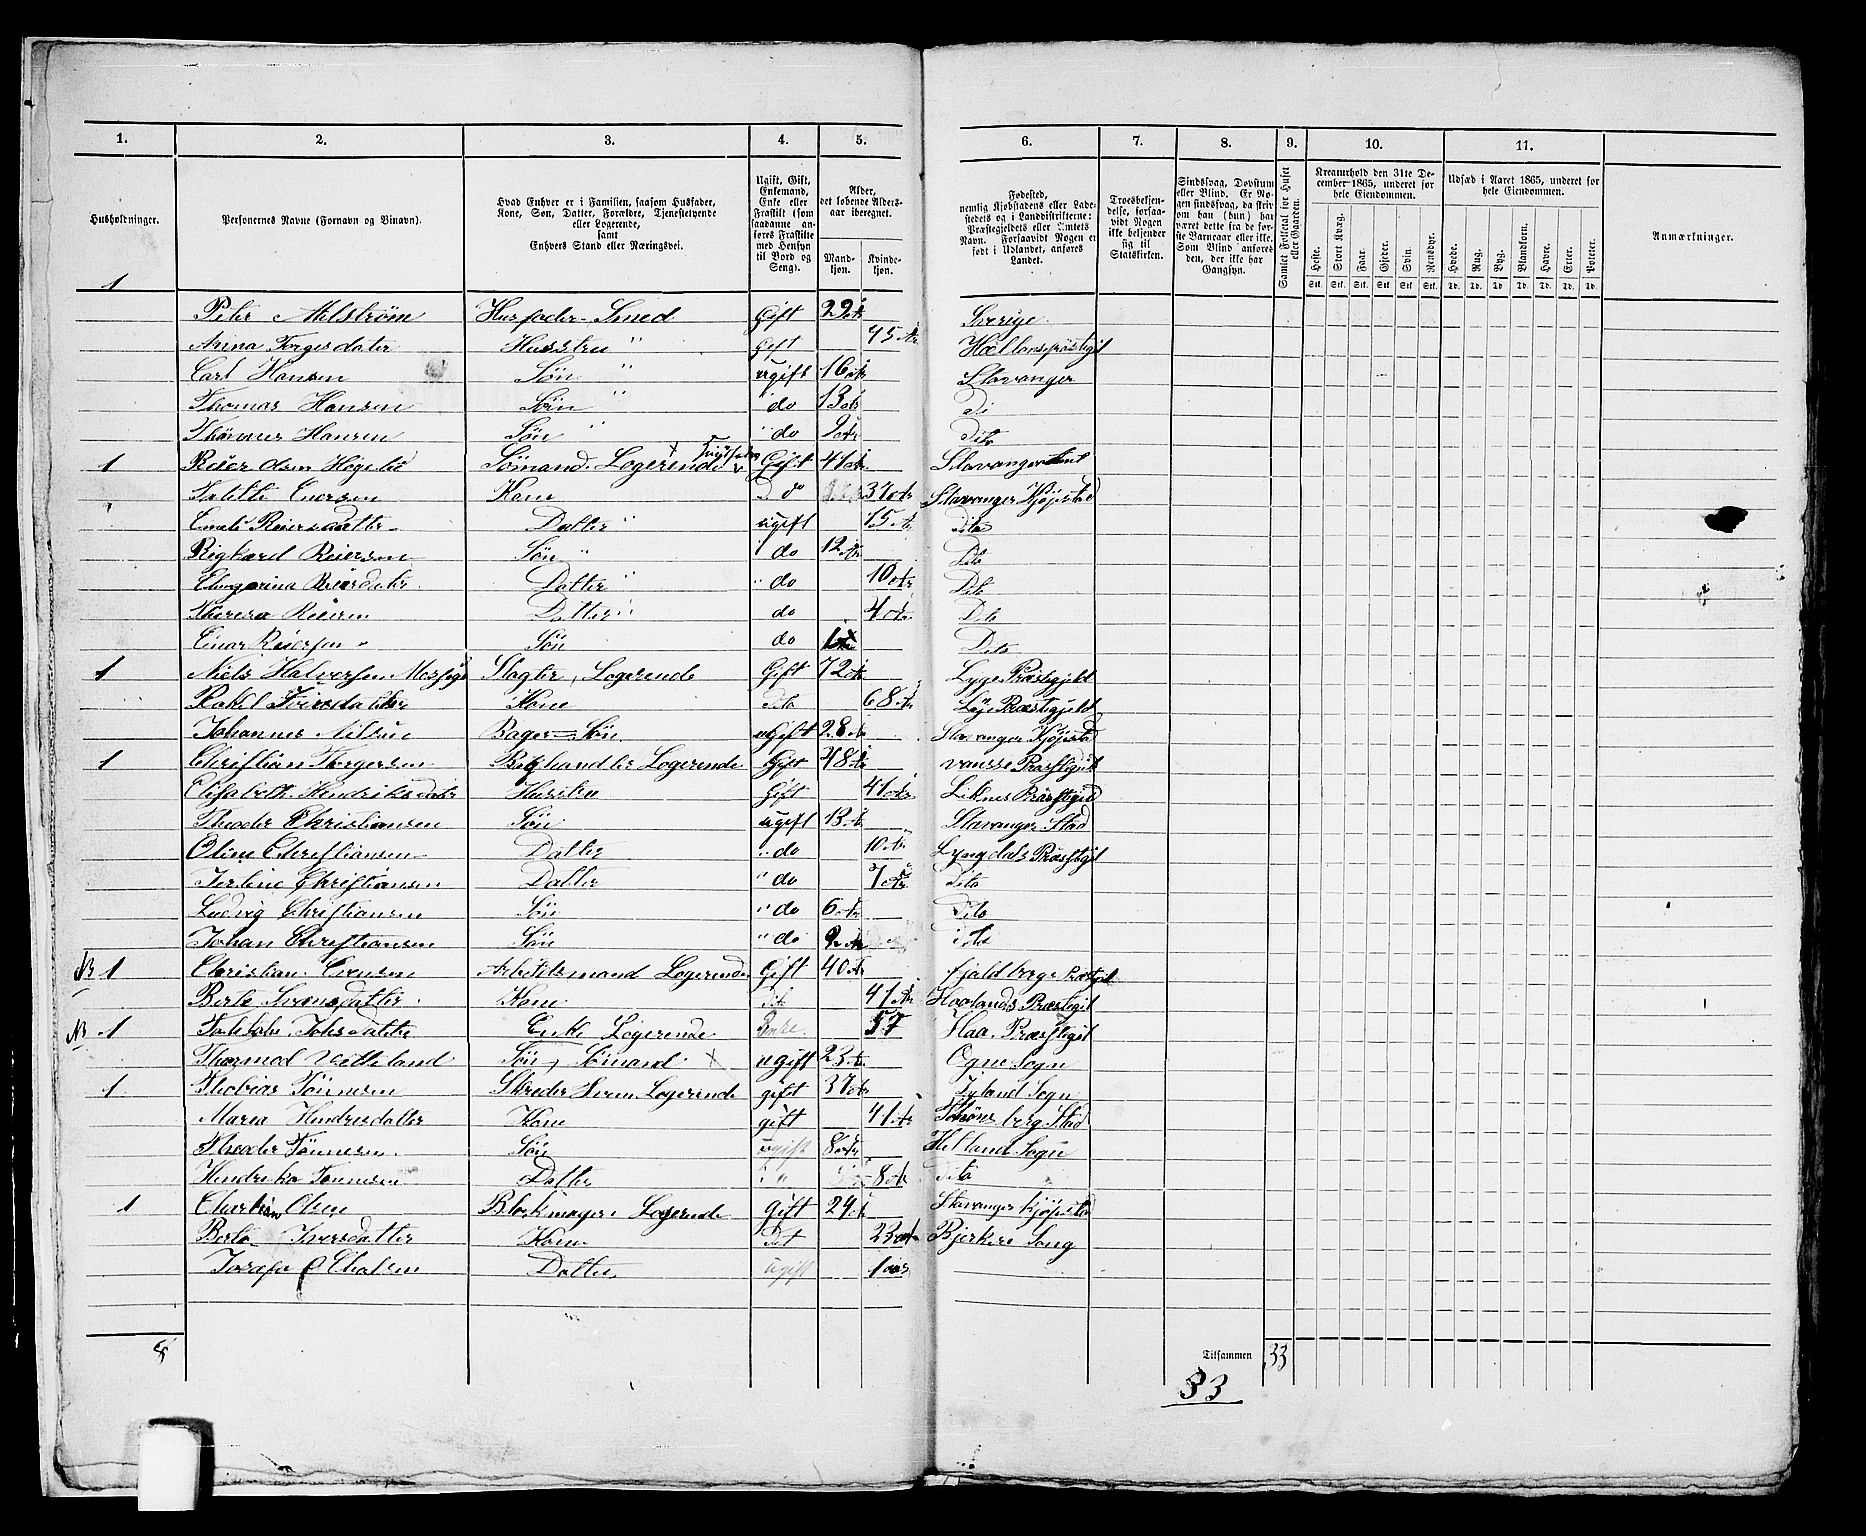 1. 2. 3. 4. 5. 6. 7. 8. 9. 10. 11.
Husholdninger.
Personernes Navne (Fornavn og Tilnavn).
Hvad Enhver er i Familien, saasom Husfader, Kone, Søn, Datter, Forældre, Tjenestetyende eller Logerende, samt Enhvers Stand eller Næringsvei.
Ugift, Gift, Enkemand, Enke eller Fraskilt (som saadanne anføres Fraskilte med Hensyn til Bord og Seng).
Alder, det løbende Aldersaar iberegnet.
Mandkjøn. Kvindekjøn.
Fødested, nemlig Kjøbstadens eller Ladestedets og i Landdistrikterne: Præstegjeldets eller Amtets Navn. Forsaavidt Nogen er født i Udlandet, anføres Landet.
Troesbekjendelse, forsaavidt Nogen ikke bekjender sig til Statskirken.
Sindssvag, Døvstum eller Blind. Er Nogen sindssvag, da skrives om han (hun) har været dette fra de første Barneaar eller ikke. Som Blind anføres den, der ikke har Gangsyn.
Samlet Folketal for Huset eller Gaarden.
Kreaturhold den 31te December 1865, underet for hele Eiendommen.
Heste. Stort Kvæg. Faar. Gjeder. Svin. Rensdyr.
Stk. Stk. Stk. Stk. Stk. Stk.
Udsæd i Aaret 1865, underet for hele Eiendommen.
Hvede. Rug. Byg. Blandkorn. Havre. Erter. Poteter.
Td. Td. Td. Td. Td. Td. Td.
Anmærkninger.
1
Peter Melstrøm Husfader Smed Gift 29 Sverige
Anna Torgesdatter Husstru " Gift 45 Ar
Carl Hansen Søn " ugift 16 Ar Stavanger
Thomas Hansen Søn " do 13 Ar Do
Hansen Søn " do 9 Ar Dito
1 Reier Olsen Sømand. Logerende Gift 41 Ar Stavanger Amt
Kone Do 37 Ar Stavanger Kjøpstad
Reiersdatter Datter " ugift 15 Ar Dito
Rigkard Reiersen Søn " do 12 Ar Dito
Reiersdatter Datter " do 10 Ar Dito
Theresa Reiersen Datter " do 4 Ar Dto
Einar Reiersen Søn do 1 Dito
1 Niels Halversen Slagter, Logerende Gift 72 Ar Lyge Præstegjeld
Rakel Kone Dito 68 Ar Lye Præstegjeld
Johannes Nilsen Bager = Søn ugift 28 Ar Stavanger Kjøpstad
1 Christian Torgersen Logerende Gift 48 Ar Vansse Præstegjæld
Elisabeth Hendriksdatter Hustru Gift 41 Ar Liknes Præstegjeld
Theodor Christiansen Søn ugift 13 Ar Stavanger Stad
Oline Christiansen Datter " do 10 Ar Lyngdals Præstegjel
Christiansen Datter " do 7 Ar Dito
Ludvig Christiansen Søn " do 6 Ar Dito
Johan Christiansen Søn " do 2 Ar Dito
NB 1 Christian Arbeidsmand Logerende Gift 40 Ar
Berte Svensdatter Kone Dito 41 Ar Haalands Præstegjel
NB 1 Enke Logerende Enke 57 Haa. Præstegjel
Thormod Vetteland Søn, Sømand ugift 23 Ar Ogne Sogn
1 Thobias Tønnesen Skreder Sven Logerende gift 37 Ar Sogn
Maria Hendrsdatter Kone gift 41 Ar Stad
Theodor Tønnesen Søn ugift 8 Ar Helland Sogn
Hendrika Tønnesen Datter " 8 Ar Dito
1 Olsen Blokmager Logerende gift 24 Ar Stavanger Kjøpstad
Berta Iversdatter Kone Dit 23 Ar
Josefa Datter ugift 1 aar
8
Tilsammen 33
33